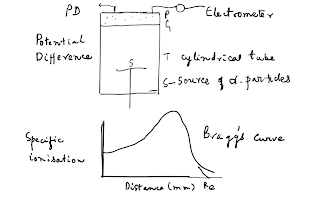 PD
Electrometer
P
G
Potential
Difference
T cylindrical tube
S
S - Source of α-particles
Specific
ionisation
Bragg's curve
Distance (mm)